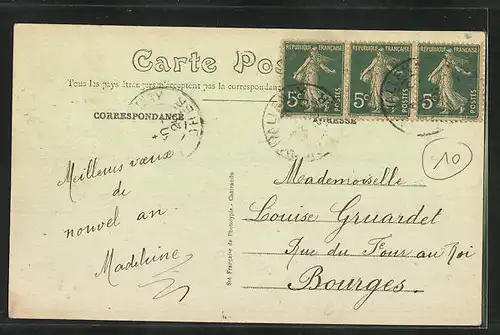 Carte Pos
Tous les pays étrangers n'acceptent pas la correspondance
RÉPUBLIQUE FRANÇAISE
5c
POSTES
RÉPUBLIQUE FRANÇAISE
5c
POSTES
RÉPUBLIQUE FRANÇAISE
5c
POSTES
CORRESPONDANCE
ADRESSE
10
Meilleurs vœux
de
nouvel an.
Madeleine
Sté Française de Phototypie - Châtraudu
Mademoiselle
Louise Gruardet
Rue du Four au Roi
Bourges.